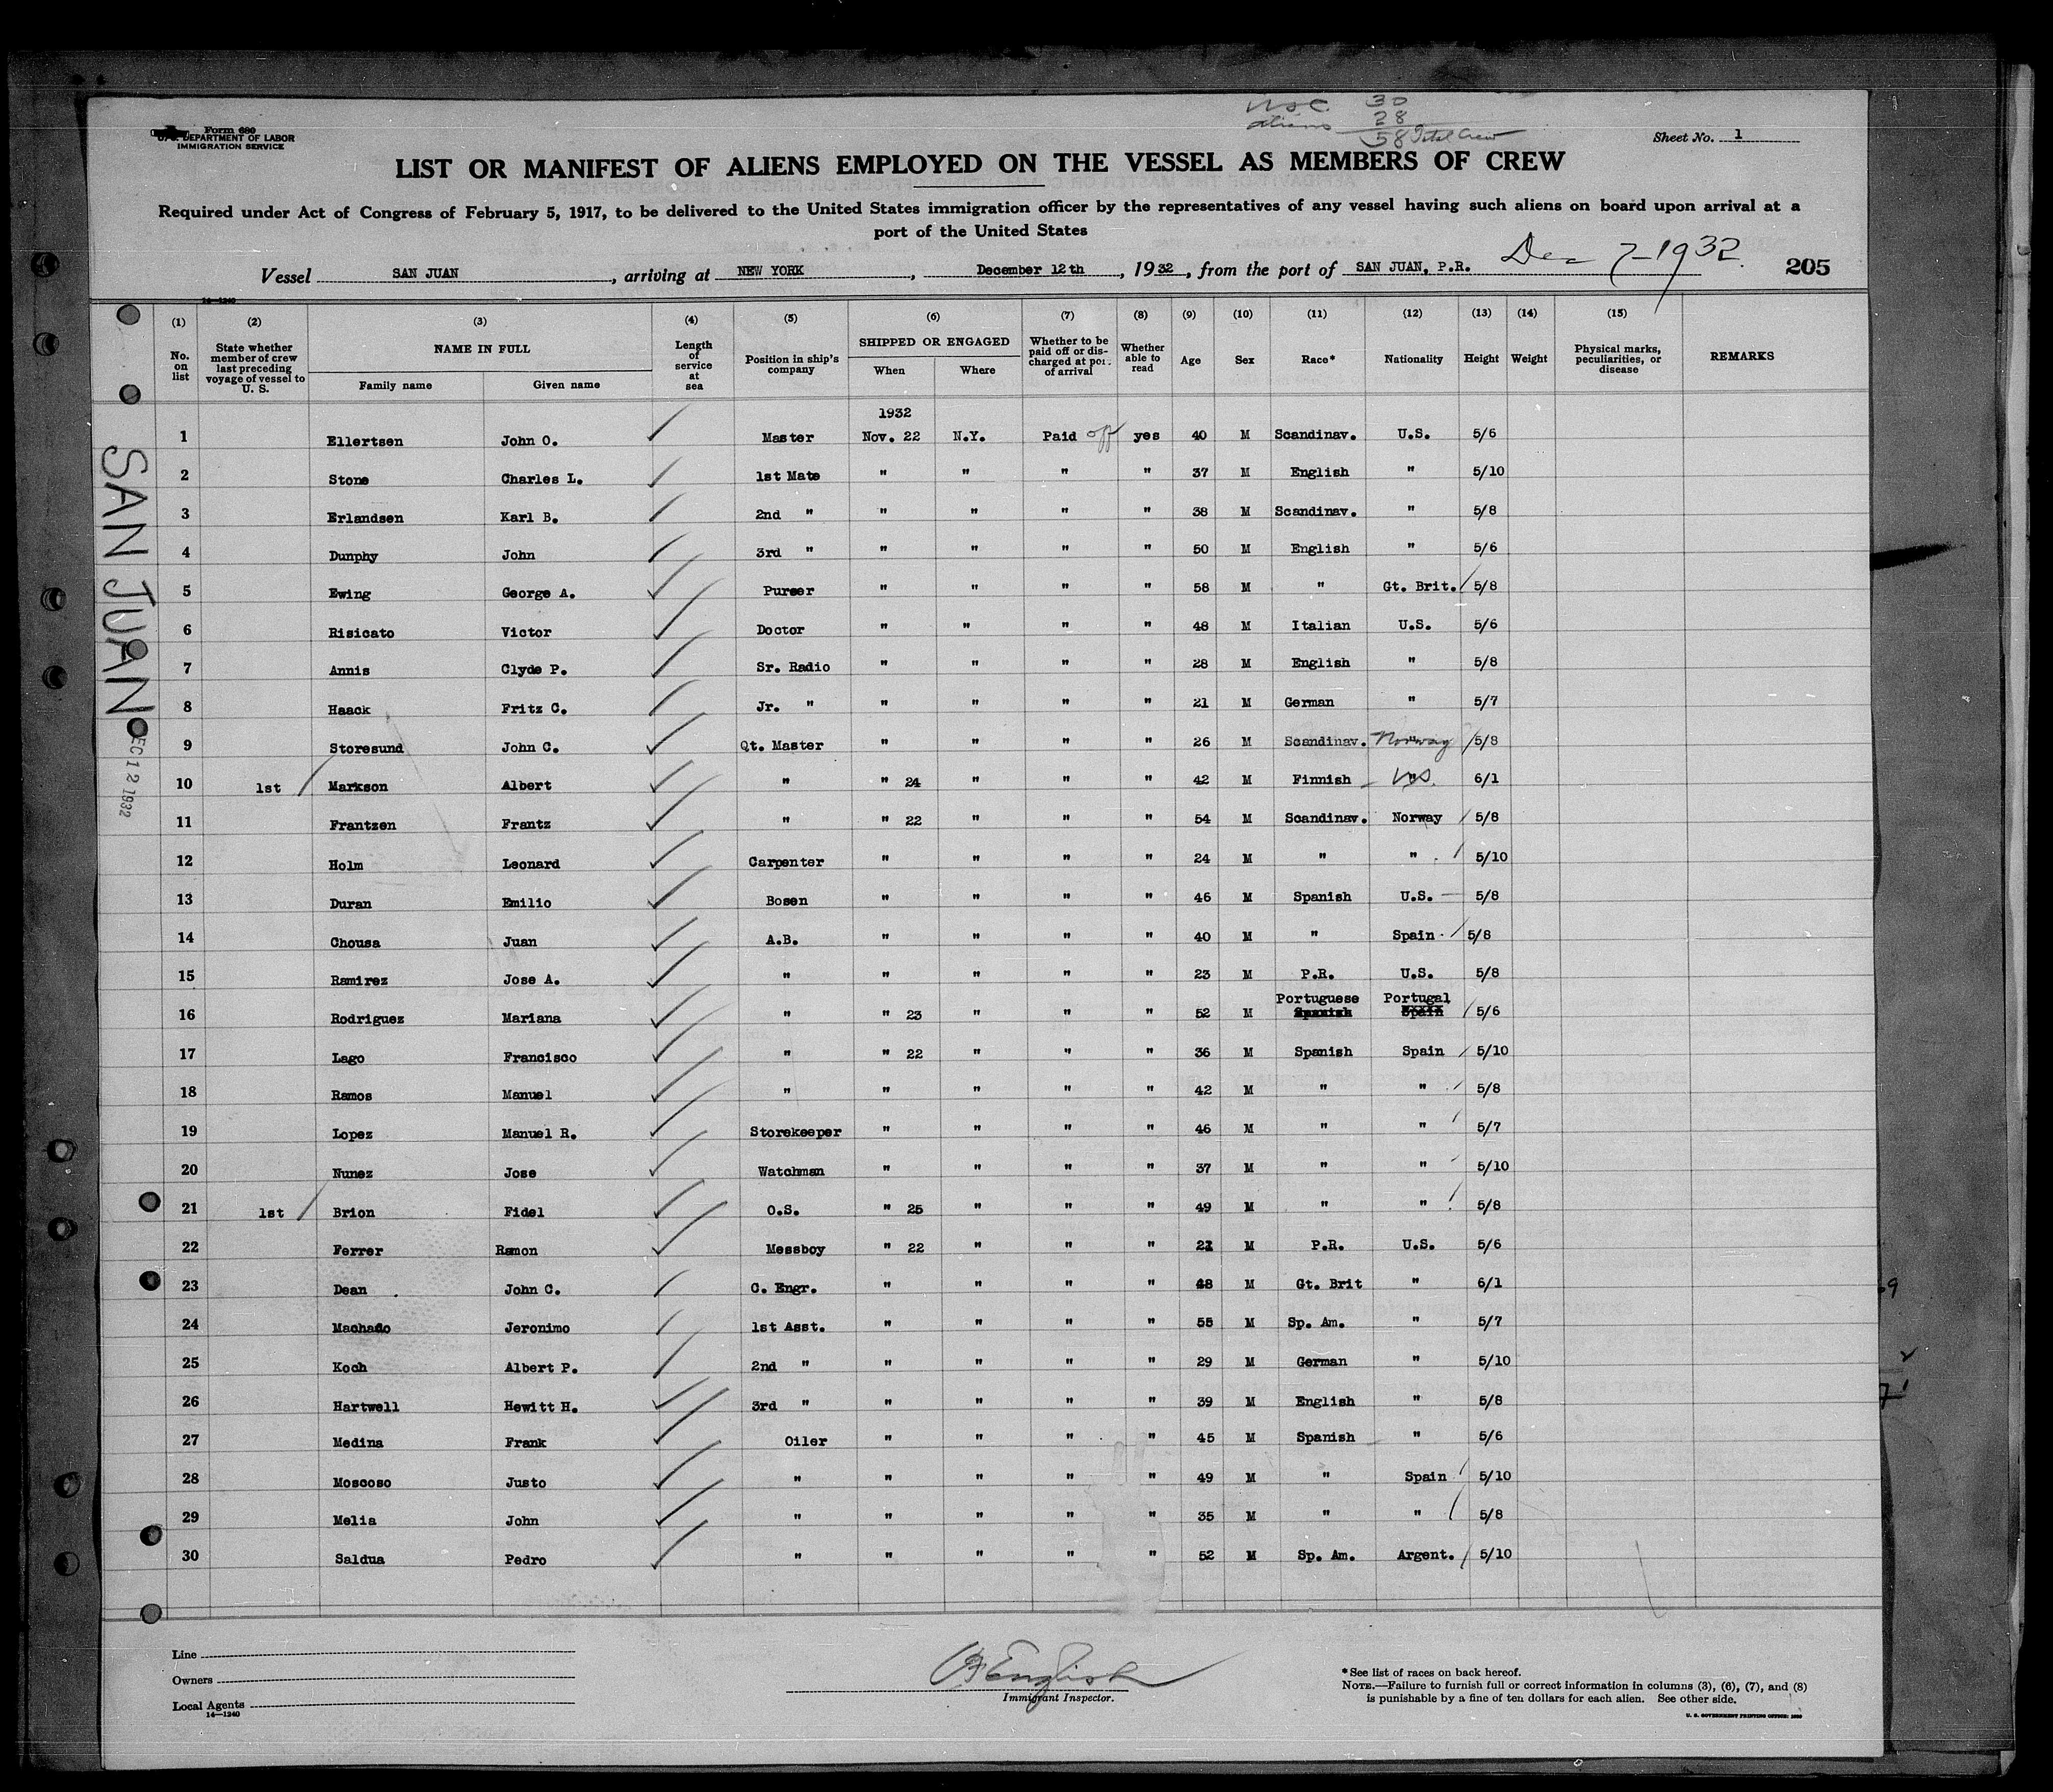 U.S.C. 30
aliens 28
58 Total Crew
Form 680
U. S. DEPARTMENT OF LABOR
IMMIGRATION SERVICE
Sheet No. 1
LIST OR MANIFEST OF ALIENS EMPLOYED ON THE VESSEL AS MEMBERS OF CREW
Required under Act of Congress of February 5, 1917, to be delivered to the United States immigration officer by the representatives of any vessel having such aliens on board upon arrival at a
port of the United States
Vessel SAN JUAN, arriving at NEW YORK, December 12th, 1932, from the port of SAN JUAN, P.R. Dec 7-1932. 205
14—1240
(1) No. on list (2) State whether member of crew last preceding voyage of vessel to U. S. (3) NAME IN FULL Family name Given name (4) Length of service at sea (5) Position in ship's company (6) SHIPPED OR ENGAGED When Where (7) Whether to be paid off or discharged at port of arrival (8) Whether able to read (9) Age (10) Sex (11) Race* (12) Nationality (13) Height (14) Weight (15) Physical marks, peculiarities, or disease REMARKS
1932
1 Ellertsen John O. Master Nov. 22 N.Y. Paid off yes 40 M Scandinav. U.S. 5/6
2 Stone Charles L. 1st Mate " " " " 37 M English " 5/10
3 Erlandsen Karl B. 2nd " " " " " 38 M Scandinav. " 5/8
4 Dunphy John 3rd " " " " " 50 M English " 5/6
5 Ewing George A. Purser " " " " 58 M " Gt. Brit. 5/8
6 Risicato Victor Doctor " " " " 48 M Italian U.S. 5/6
7 Annis Clyde P. Sr. Radio " " " " 28 M English " 5/8
8 Haack Fritz C. Jr. " " " " " 21 M German " 5/7
9 Storesund John C. Qt. Master " " " " 26 M Scandinav. Norway 5/8
10 1st Markson Albert " " 24 " " " 42 M Finnish U.S. 6/1
11 Frantzen Frantz " " 22 " " " 54 M Scandinav. Norway 5/8
12 Holm Leonard Carpenter " " " " 24 M " " 5/10
13 Duran Emilio Bosen " " " " 46 M Spanish U.S. 5/8
14 Chousa Juan A.B. " " " " 40 M " Spain 5/8
15 Ramirez Jose A. " " " " " 23 M P.R. U.S. 5/8
16 Rodriguez Mariana " " 23 " " " 52 M Portuguese Spanish Portugal Spain 5/6
17 Lago Francisco " " 22 " " " 36 M Spanish Spain 5/10
18 Ramos Manuel " " " " " 42 M " " 5/8
19 Lopez Manuel R. Storekeeper " " " " 46 M " " 5/7
20 Nunez Jose Watchman " " " " 37 M " " 5/10
21 1st Brion Fidel O.S. " 25 " " " 49 M " " 5/8
22 Ferrer Ramon Messboy " 22 " " " 21 M P.R. U.S. 5/6
23 Dean John C. C. Engr. " " " " 48 M Gt. Brit " 6/1
24 Machado Jeronimo 1st Asst. " " " " 55 M Sp. Am. " 5/7
25 Koch Albert P. 2nd " " " " " 29 M German " 5/10
26 Hartwell Hewitt H. 3rd " " " " " 39 M English " 5/8
27 Medina Frank Oiler " " " " 45 M Spanish " 5/6
28 Moscoso Justo " " " " " 49 M " Spain 5/10
29 Melia John " " " " " 35 M " " 5/8
30 Saldua Pedro " " " " " 52 M Sp. Am. Argent. 5/10
SAN JUAN
EC 12 1932
Line
Owners
Local Agents
14—1240
English
Immigrant Inspector.
*See list of races on back hereof.
NOTE.—Failure to furnish full or correct information in columns (3), (6), (7), and (8)
is punishable by a fine of ten dollars for each alien. See other side.
U. S. GOVERNMENT PRINTING OFFICE: